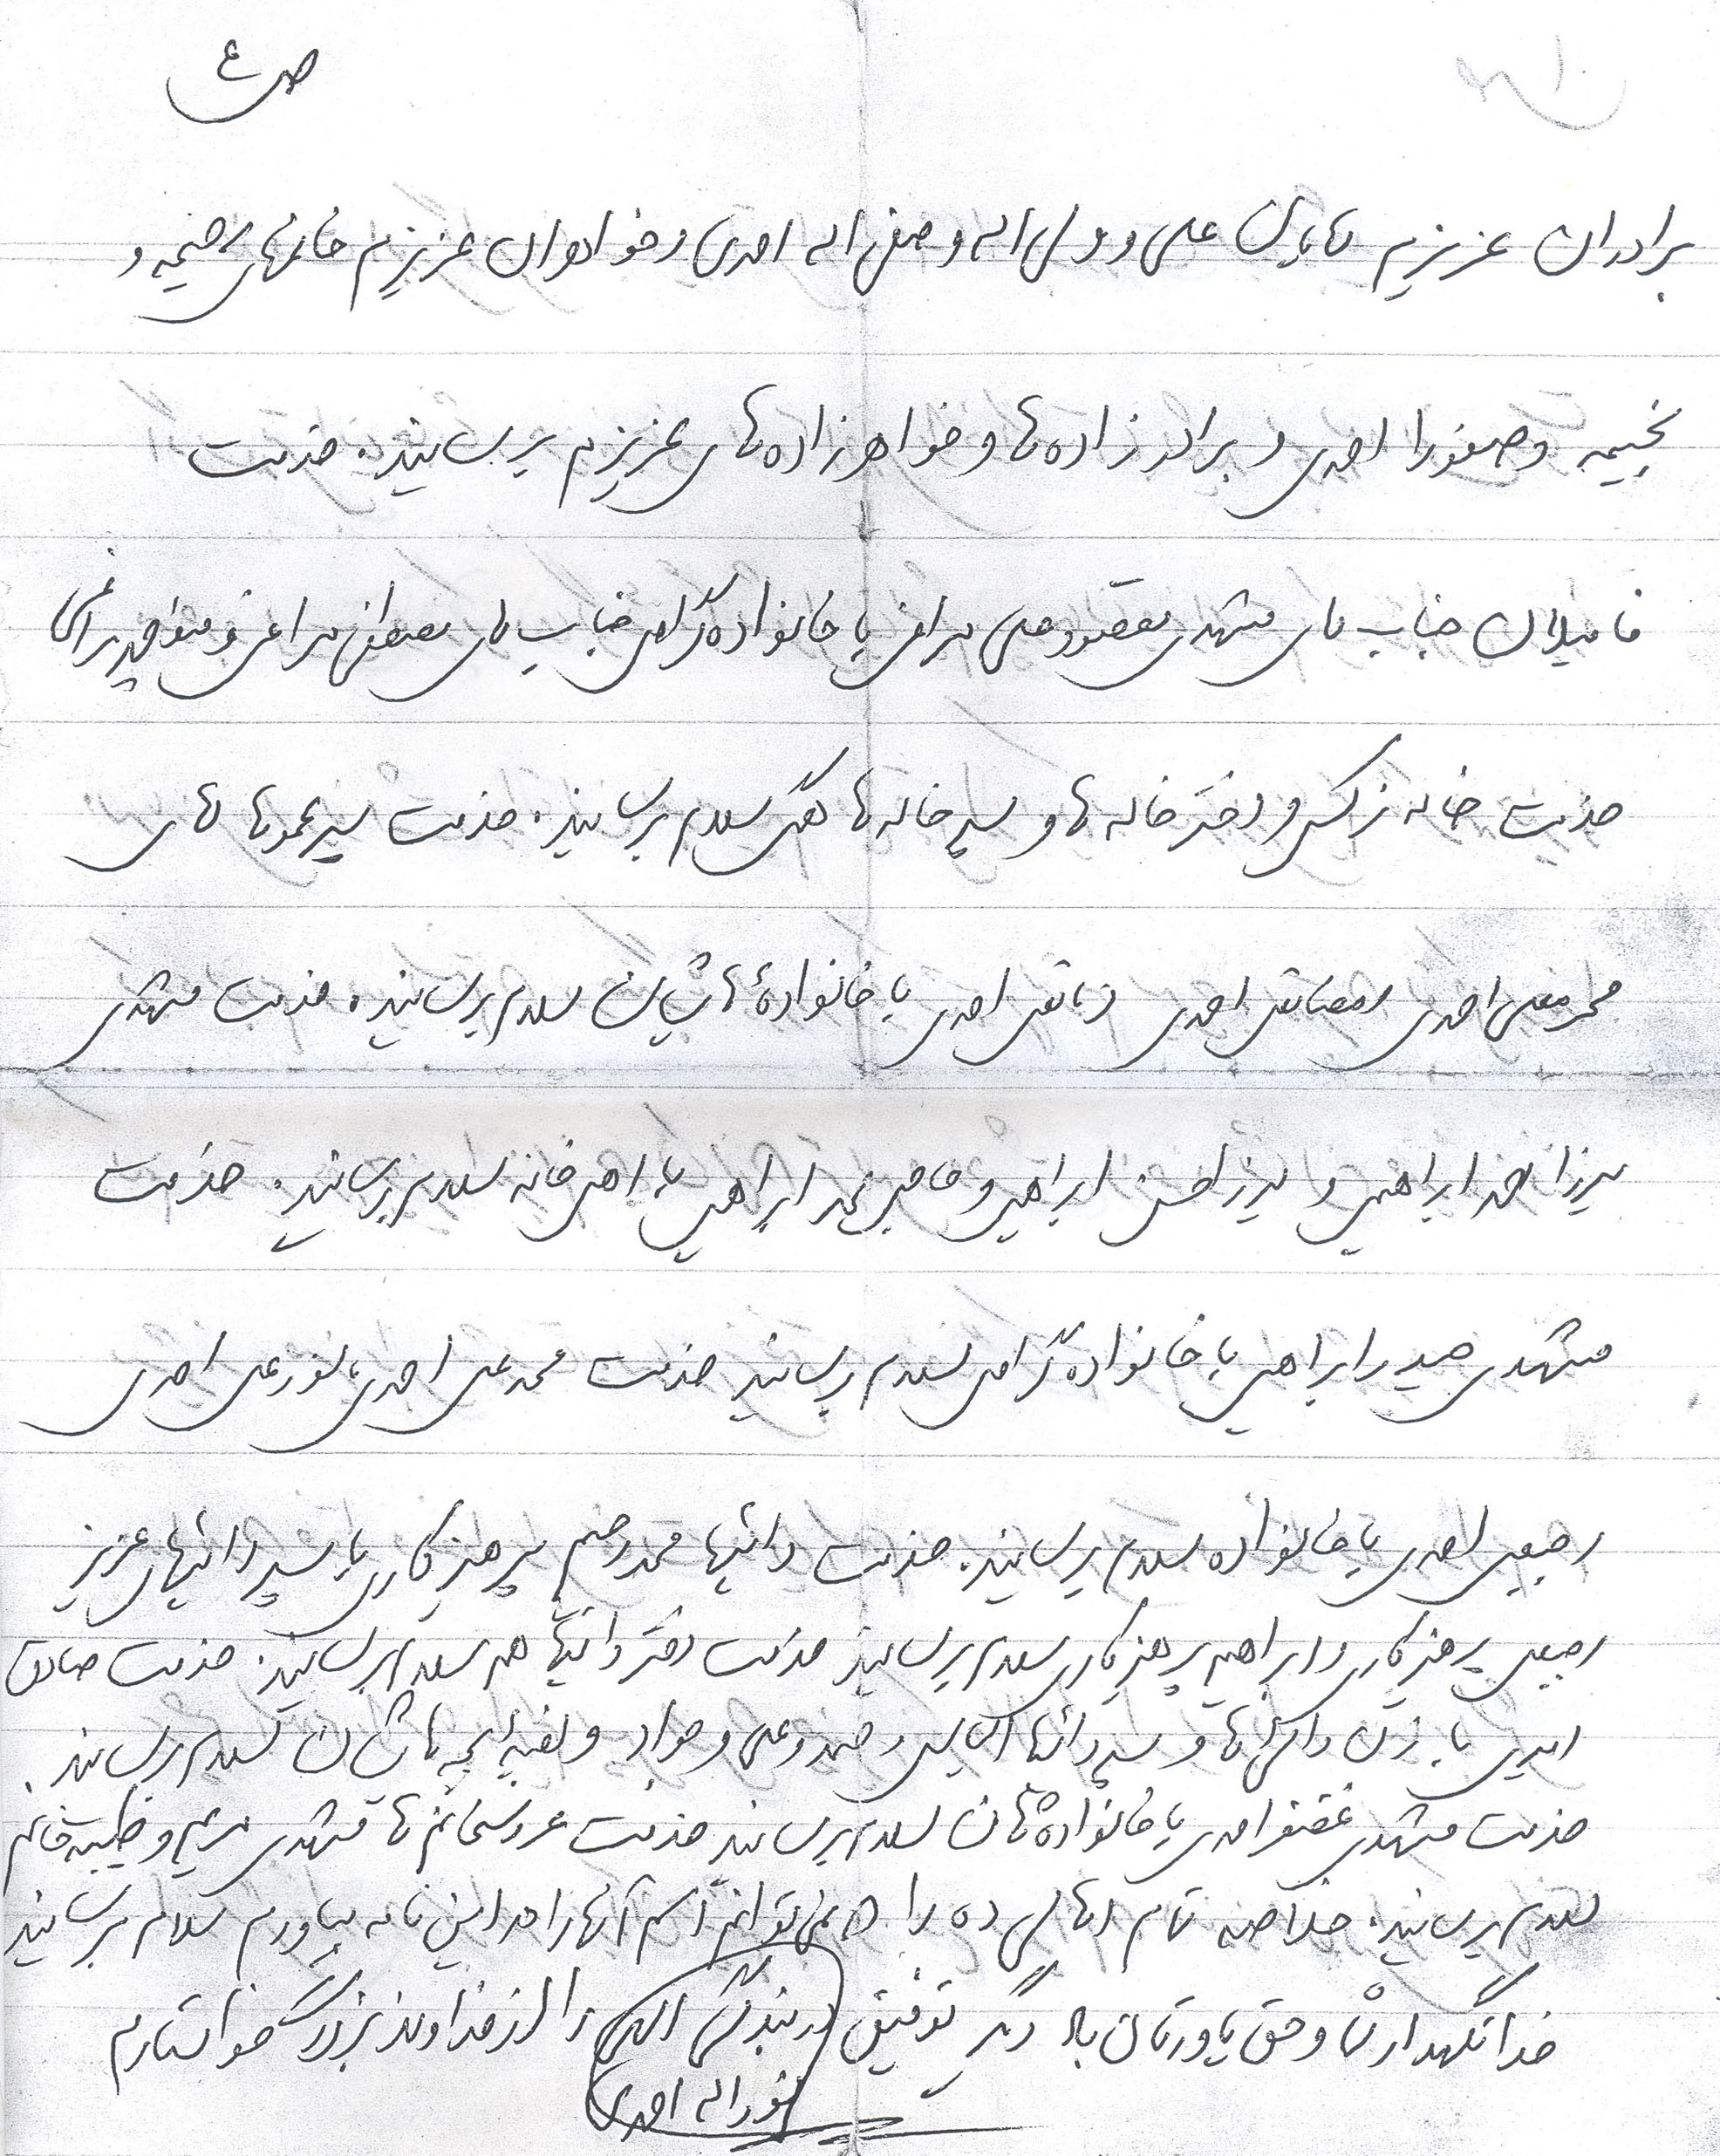 ص ۴
برادران عزیزم آقایان علی و ولی اله و صفی اله احمدی و خواهران عزیزم خانمهای رحیمه و
نجیمه و صغورا احمدی و برادر زاده ها و خواهر زاده های عزیزم برسانید. خدمت
فامیلان جناب آقای مشهدی مقصود علی مراغی با خانواده گرامی جناب آقای مصطفی مراغی و
خدمت خاله نرگس و دختر خاله ها و پسر خاله ها همگی سلام برسانید. خدمت پسر عموها آقای
محرمعلی احمدی رمضانعلی احمدی قربانعلی احمدی با خانوادهٔ هاشان سلام برسانید. خدمت مشهدی
میرزا احمد ابراهیمی و میرزا حسن ابراهیمی و حاجی محمد ابراهیمی با اهل خانه سلام برسانید. خدمت
مشهدی حیدر ابراهیمی با خانواده گرامی سلام برسانید خدمت محمد علی احمدی، نور علی احمدی
رجبعلی احمدی با خانواده سلام برسانید. خدمت دائیها محمد رحیم پرهیزکاری با پسر دائیهای عزیز
رجبعلی پرهیزکاری و ابراهیم پرهیزکاری سلام برسانید خدمت دختر دائیها هم سلام برسانید. خدمت صادق
امیری با زن دائی ها و پسر دائیها و صمد و علی و جواد و بقیه بچه هاشان سلام برسانید.
خدمت مشهدی غضنفر احمدی با خانواده شان سلام برسانید خدمت عروسخانم ها مشهدی مریم و طیبه خانم
سلام برسانید. خلاصه تمام اهالی ده را که نمی توانم اسم آنها را در این نامه بیاورم سلام برسانید
خدا نگهدارتان و حق یاورتان باد دیگر توفیق در بندگی الهی را از خداوند بزرگ خواستارم
نوراله احمدی